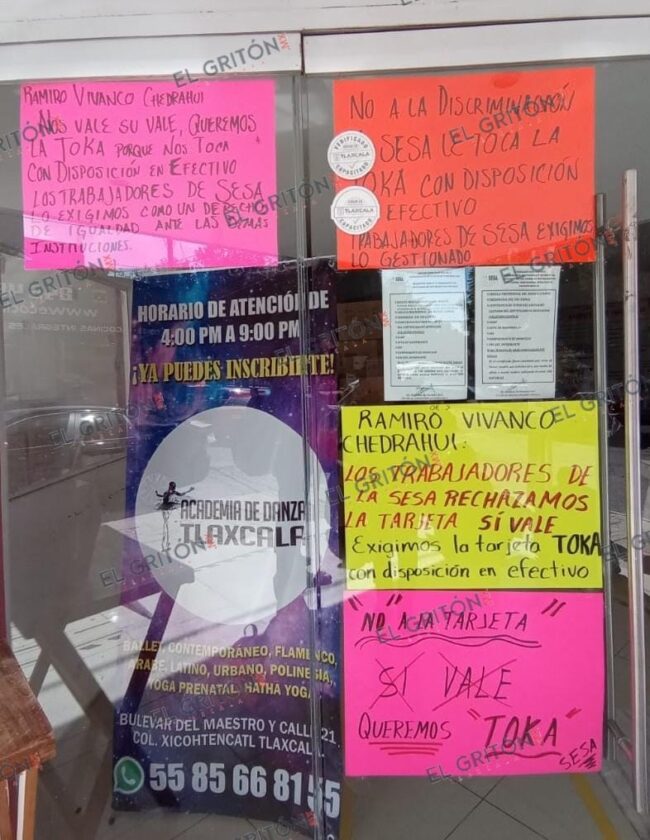 RAMIRO VIVANCO CHEDRAHUI
NOS VALE SU VALE, QUEREMOS
LA TOKA PORQUE NOS TOCA
CON DISPOSICIÓN EN EFECTIVO
LOS TRABAJADORES DE SESA
LO EXIGIMOS COMO UN DERECHO
DE IGUALDAD ANTE LAS DEMAS
INSTITUCIONES.
NO A LA DISCRIMINACIÓN
SESA LE TOCA LA
TOKA CON DISPOSICIÓN
EFECTIVO
TRABAJADORES DE SESA EXIGIMOS
LO GESTIONADO
TLAXCALA
CAPACITADO
TLAXCALA
CAPACITADO
HORARIO DE ATENCIÓN DE
4:00 PM A 9:00 PM
¡YA PUEDES INSCRIBIRTE!
ACADEMIA DE DANZA
TLAXCALA
BALLET, CONTEMPORÁNEO, FLAMENCO,
ÁRABE, LATINO, URBANO, POLINESIA,
YOGA PRENATAL, HATHA YOGA
BULEVAR DEL MAESTRO Y CALLE 21,
COL. XICOHTENCATL TLAXCALA
55 85 66 81 55
RAMIRO VIVANCO
CHEDRAHUI:
LOS TRABAJADORES DE
LA SESA RECHAZAMOS
LA TARJETA SÍ VALE
Exigimos la tarjeta TOKA
con disposición en efectivo
"NO" A LA TARJETA
SI VALE
QUEREMOS "TOKA"
SESA
EL GRITÓN MX